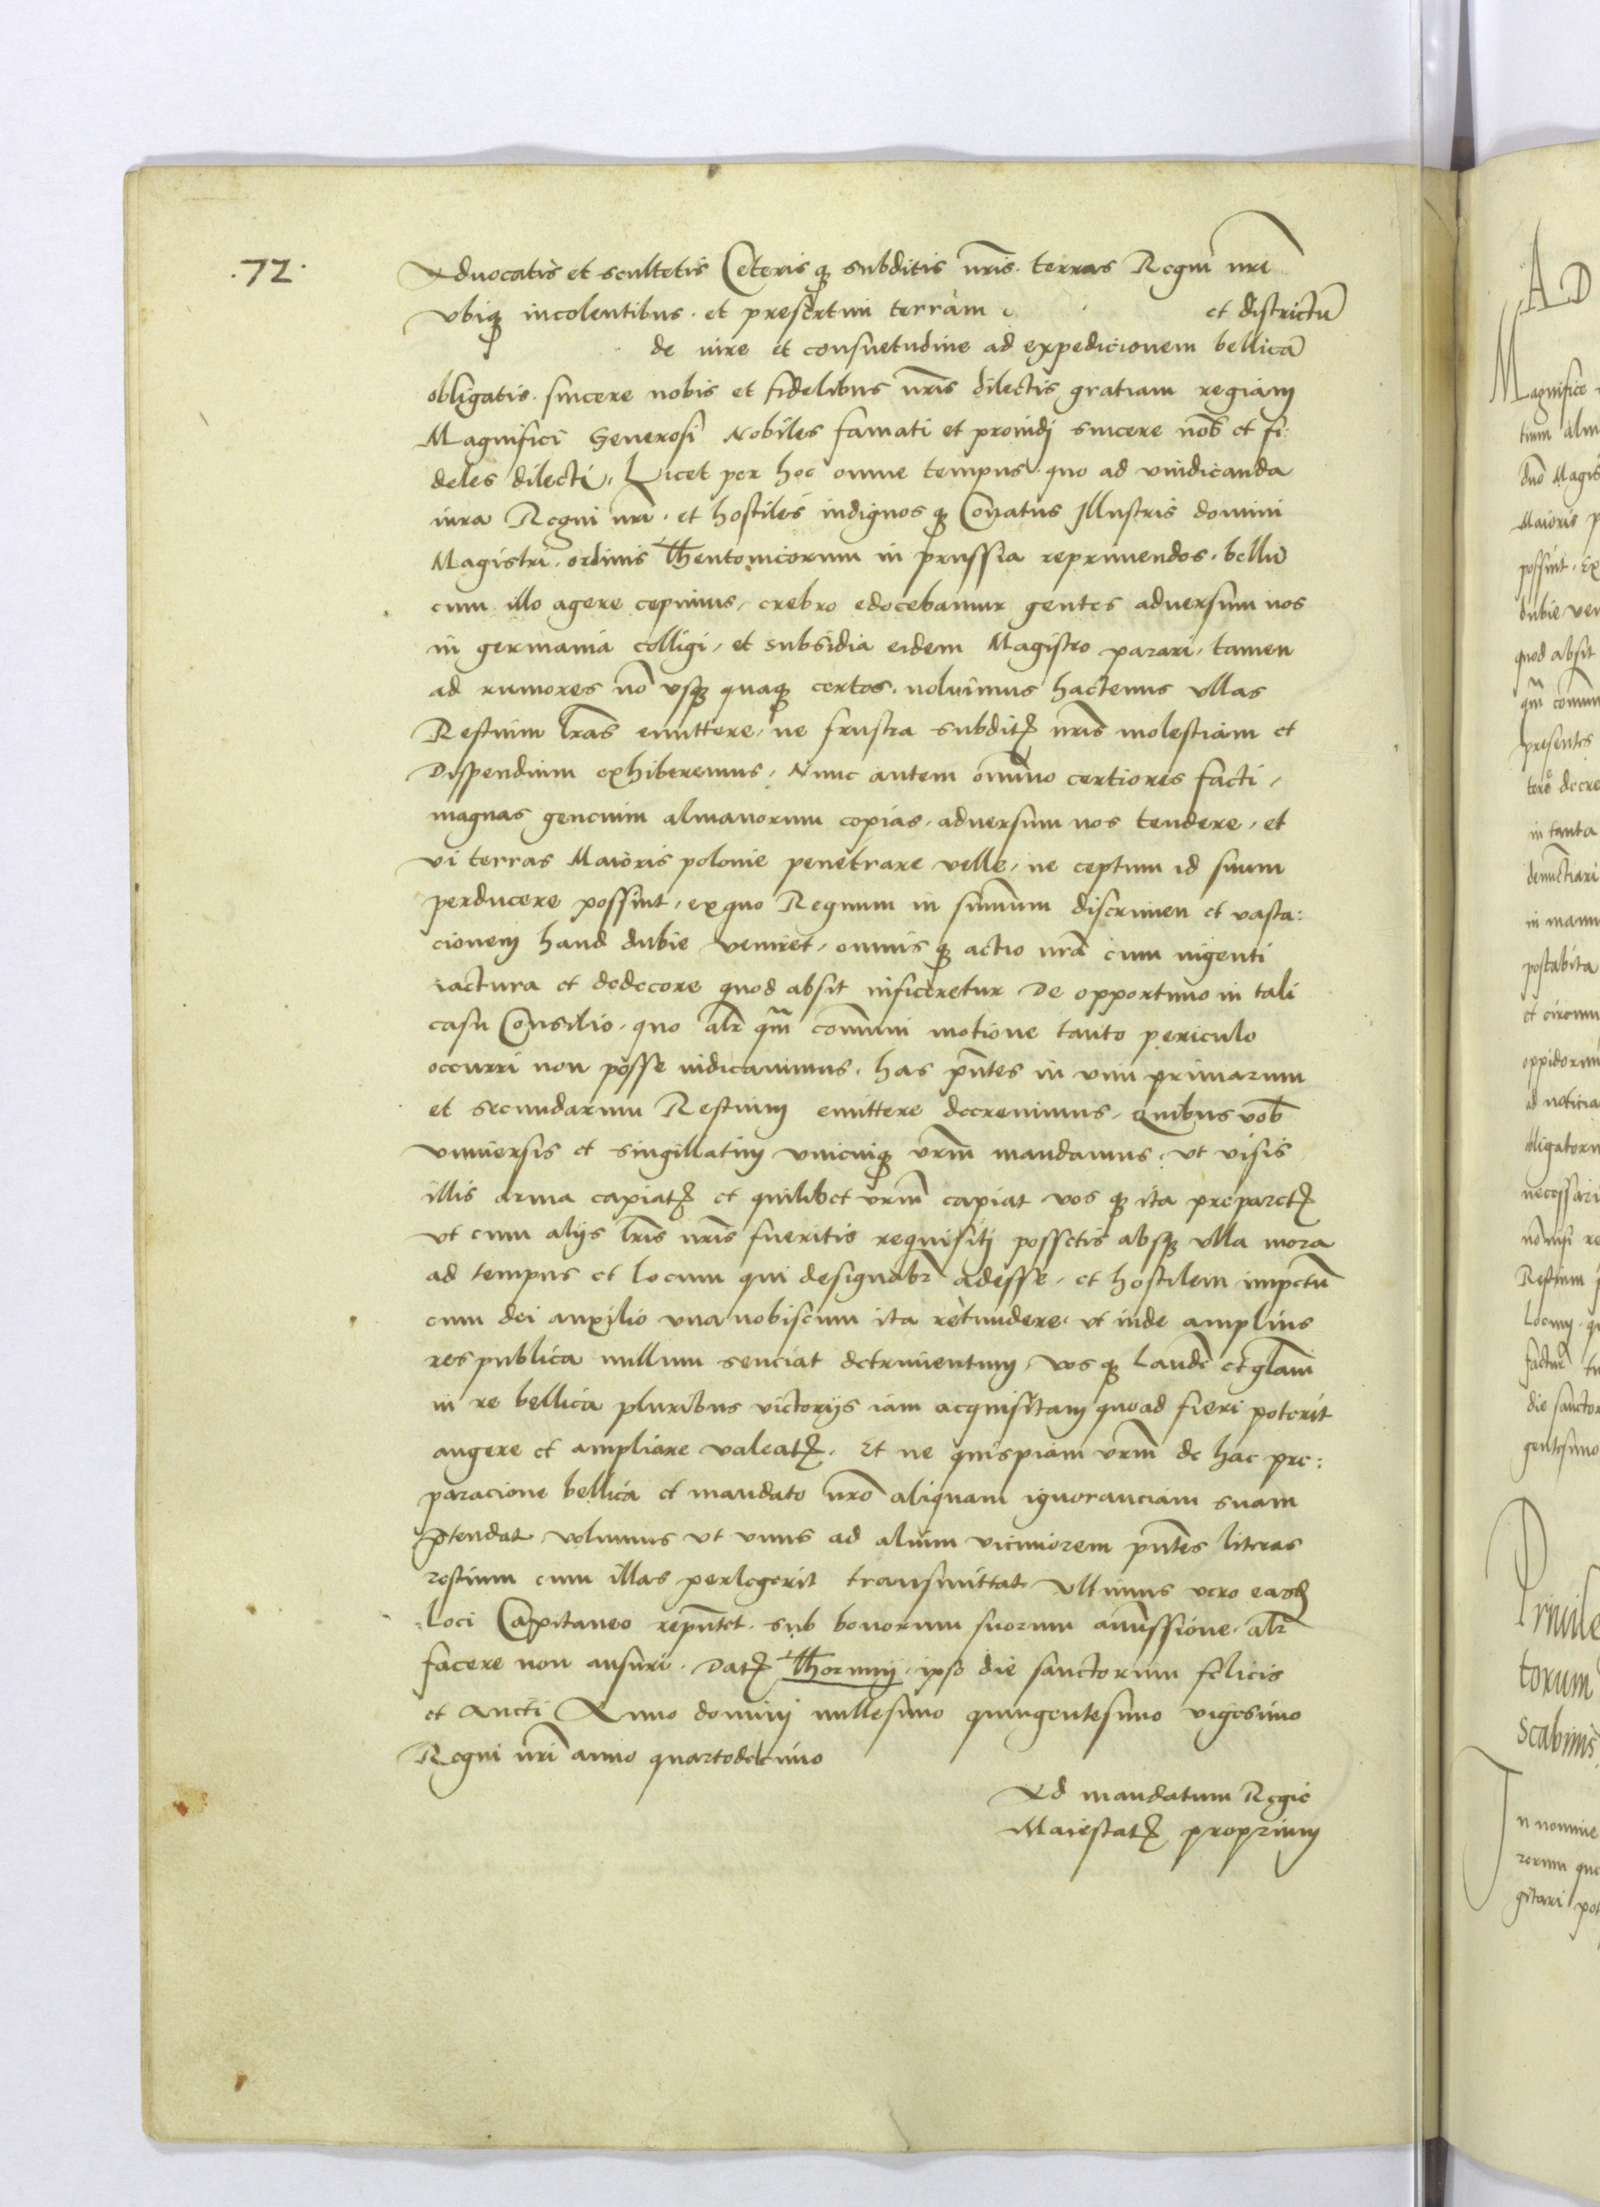 .72.
Advocatis et scultetis Ceteris q3 subditis nr̄is terras Regni nr̄i
vbiq3 incolentibus et presertim terram et districtū
de iure et consuetudine ad expedicionem bellicā
obligatis sincere nobis et fidelibus nr̄is dilectis gratiam regiam
Magnifici Generosi Nobiles famati et prouidj sincere nob̄ et fi:
deles dilecti, Licet per hoc omne tempus quo ad vindicanda
iura Regni nr̄i et hostiles indignos q3 Conatus Illustris domini
Magistri ordinis Theutonicorum in prussia reprimendos bellū
cum illo agere cepimus, crebro edocebamur gentes aduersum nos
in germania colligi, et subsidia eidem Magistro parari, tamen
ad rumores nō vsq3 quaq3 certos noluimus hactenus vllas
Restium l̄ras emittere, ne frustra subditꝭ nr̄is molestiam et
Dispendium exhiberemus, Nunc autem omīno certiores facti,
magnas gencium almanorum copias, aduersum nos tendere, et
vi terras Maioris polonie penetrare velle, ne ceptum id suum
perducere possint, ex quo Regnum in sum̄um discrimen et vasta:
cionem haud dubie veniret, omnis q3 actio nr̄a cum ingenti
iactura et dedecore quod absit inficeretur De opportuno in tali
casu Consilio, quo alr̄ qm̄ com̄uni motione tanto periculo
occurri non posse iudicauimus, has pn̄tes in vim primarum
et secundarum Restium emittere decreuimus, Quibus vob̄
vniuersis et singillatim vnicuiq3 vr̄m mandamus, vt visis
illis arma capiatꝭ et quilibet vr̄m capiat vos q3 ita preparetꝭ
vt cum alijs l̄ris nr̄is fueritis requisitj possetis absq3 vlla mora
ad tempus et locum qui designabr̄ adesse, et hostilem impetū
cum dei auxilio vna nobiscum ita retundere, vt inde amplius
res publica nullum senciat detrimentum, vos q3 laudē et gl̄am
in re bellica pluribus victorijs iam acquisitam quoad fieri poterit
augere et ampliare valeatꝭ. Et ne quispiam vr̄m de hac pre:
paracione bellica et mandato nr̄o aliquam ignoranciam suam
p̄tendat volumus vt vnus ad alium viciniorem pn̄tes literas
restium cum illas perlegerit transmittat vltimus vero easdꝫ
loci Capitaneo repn̄tet sub bonorum suorum amissione, alr̄
facere non ausuri. Datꝭ Thorunij ipso die sanctorum felicis
et Aucti Anno dominj millesimo quingentesimo vigesimo
Regni nr̄i anno quartodecimo
Ad mandatum Regie
Maiestatꝭ proprium
AD
Magnifice
possint, Ex
quod absit
presentes
in tanta
in manu
postabita
ad noticia
obligatoru
necessari
Restium
die sancto
gentesimo
torum
Scabinis
In nomine
rerum que
gitari pot